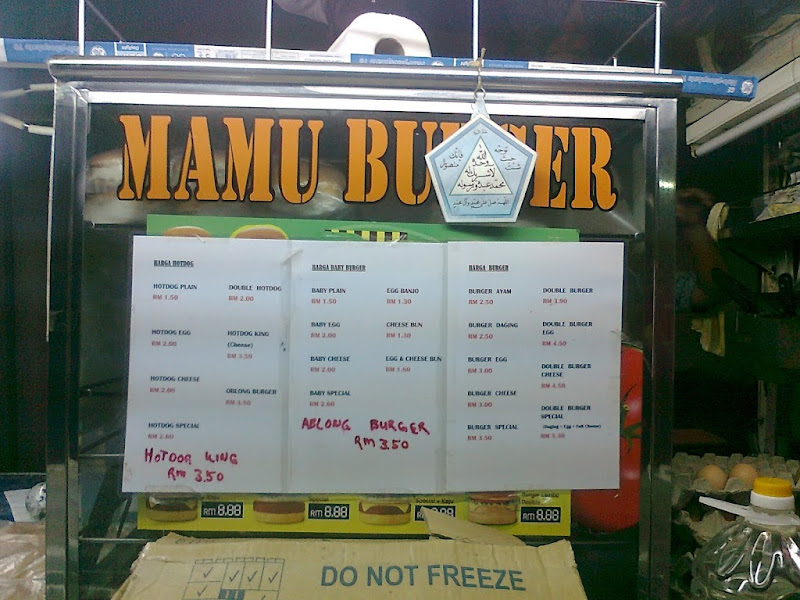 MAMU BURGER
HARGA HOTDOG
HOTDOG PLAIN
RM 1.50
DOUBLE HOTDOG
RM 2.00
HOTDOG EGG
RM 2.00
HOTDOG KING
(Cheese)
RM 3.50
HOTDOG CHEESE
RM 2.00
OBLONG BURGER
RM 4.50
HOTDOG SPECIAL
RM 2.60
HOTDOG KING
RM 3.50
HARGA BABY BURGER
BABY PLAIN
RM 1.50
EGG BANJO
RM 1.30
BABY EGG
RM 2.00
CHEESE BUN
RM 1.30
BABY CHEESE
RM 2.00
EGG & CHEESE BUN
RM 1.60
BABY SPECIAL
RM 2.60
ABLONG BURGER
RM 3.50
HARGA BURGER
BURGER AYAM
RM 2.50
DOUBLE BURGER
RM 3.90
BURGER DAGING
RM 2.50
DOUBLE BURGER
EGG
RM 4.50
BURGER EGG
RM 3.00
DOUBLE BURGER
CHEESE
RM 4.50
BURGER CHEESE
RM 3.00
DOUBLE BURGER
SPECIAL
(Daging + Egg + Cheese)
RM 5.30
BURGER SPECIAL
RM 3.50
RM 8.88
RM 8.88
RM 8.88
RM 8.88
DO NOT FREEZE